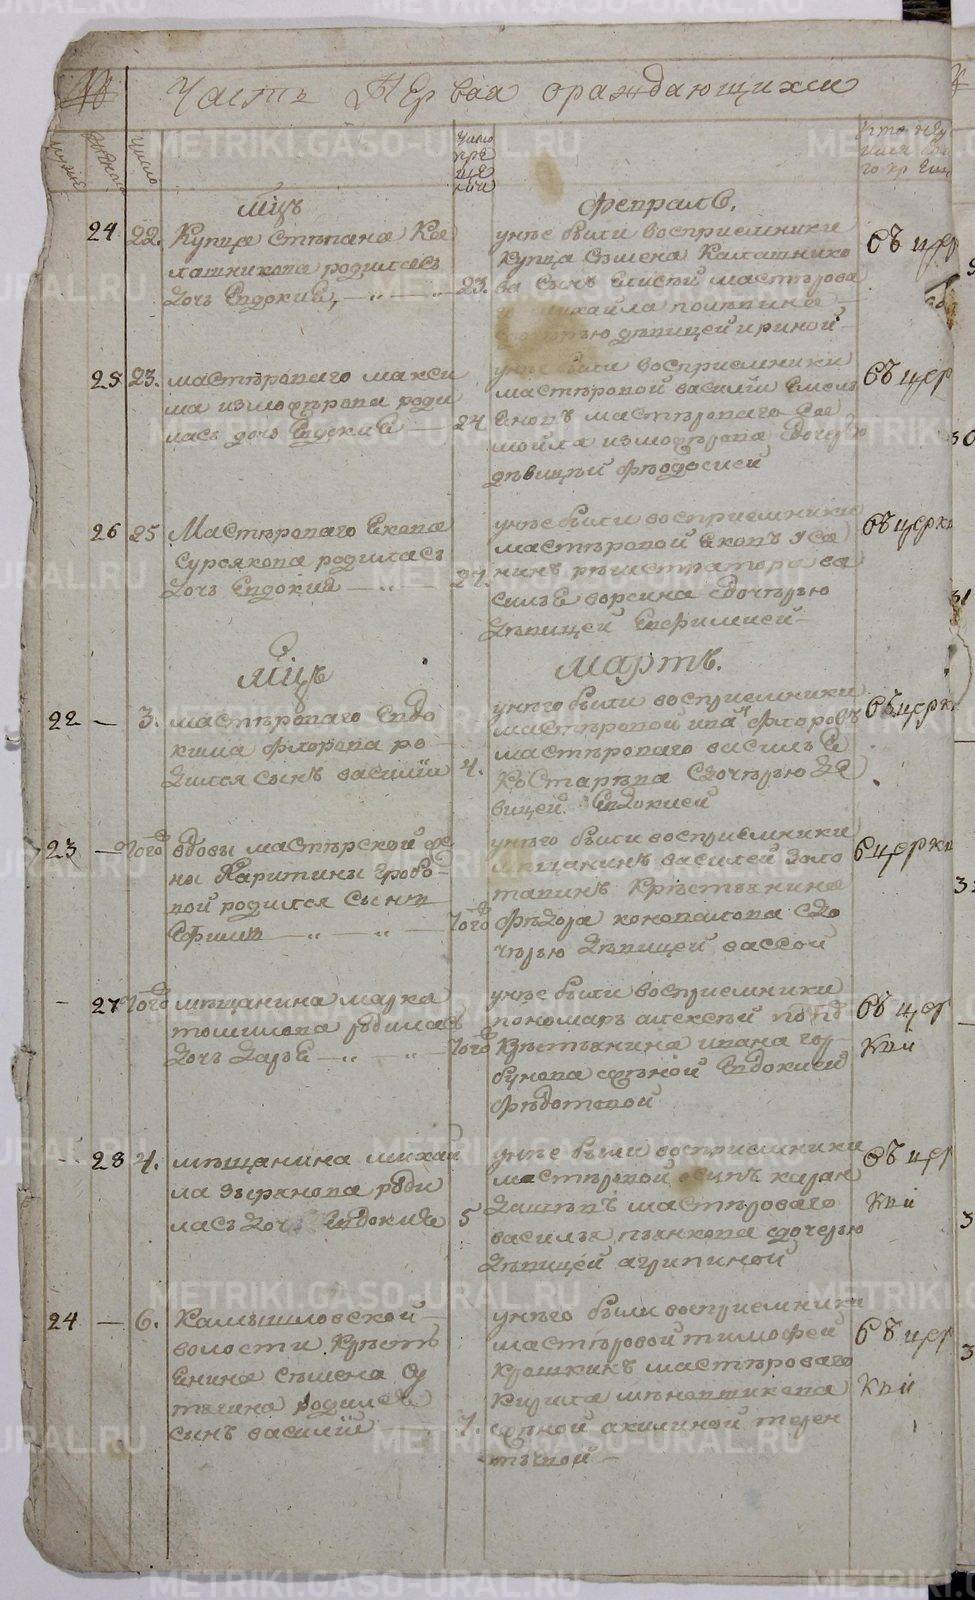 Часть Первая ораждающихся
мужес женско число
число кре ще нiи
мцъ Февраль.
24 22. Купца Стъпана Ка
лашникова родилась
дочь Евдокия, 23.
унъе были восприемники
купца Съмена Калашнико
ва сынъ мастърова
михайла
дъвицей ириной
съ цер
25 23. мастъроваго макси
ма измодърова роди
лась дочь Евдокия 24
унъе были восприемники
мастъровой василiй Емель
Еновъ мастъроваго Са
мойла измодърова сдочерью
дъвицъй Фъодосией
съ цер
26 25 Мастъроваго Якова
Сурсякова родилась
дочь Евдокия 27.
унъе были восприемники
мастъровой Яковъ Уса
нинъ ръгистратора ва
силья ворсина сдочърью
дъвицей Евфимией
съ церкв
мцъ мартъ.
22 — 3. мастъроваго Евдо
кима Флорова ро
дился сынъ василiй 4.
унъго были восприемники
мастъровой иванъ Флоровъ
мастъроваго василья
Костарева сдочърью дъ
вицей Евдокией
съ церкв
23 — того вдовы мастърской жъ
ны Харитины Гробо
вой родился сынъ
Ефимъ того
унъго были восприемники
мъщанинъ василей Золо
тавинъ Кръстьянина
Фъдора коновалова сдо
чърью дъвицей вассой
6 церкв
27 того мъщанина марка
томилова родилась
дочь дарья того
унъе были восприемники
пономарь алексъй попо
Кръстьянина ивана гор
бунова съжъной Евдокией
Фъдотовой
съ цер
кви
28 4. мъщанина михай
ла зырянова роди
лась дочь Евдокия 5
унъе были восприемники
мастъровой осипъ каран
дашевъ мастъроваго
василья пьянкова сдочерью
дъвицей агрипиной
съ цер
кви
24 — 6. Камышловской
волости Кръсть
Енина Съмена Су
тягина родился
синъ василiй 7.
унъго были восприемники
мастъровой тимофей
Крошкинъ мастъроваго
Кирила
съжъной акилиной терен
тъевой
съ цер
кви
METRIKI.GASO-URAL.RU